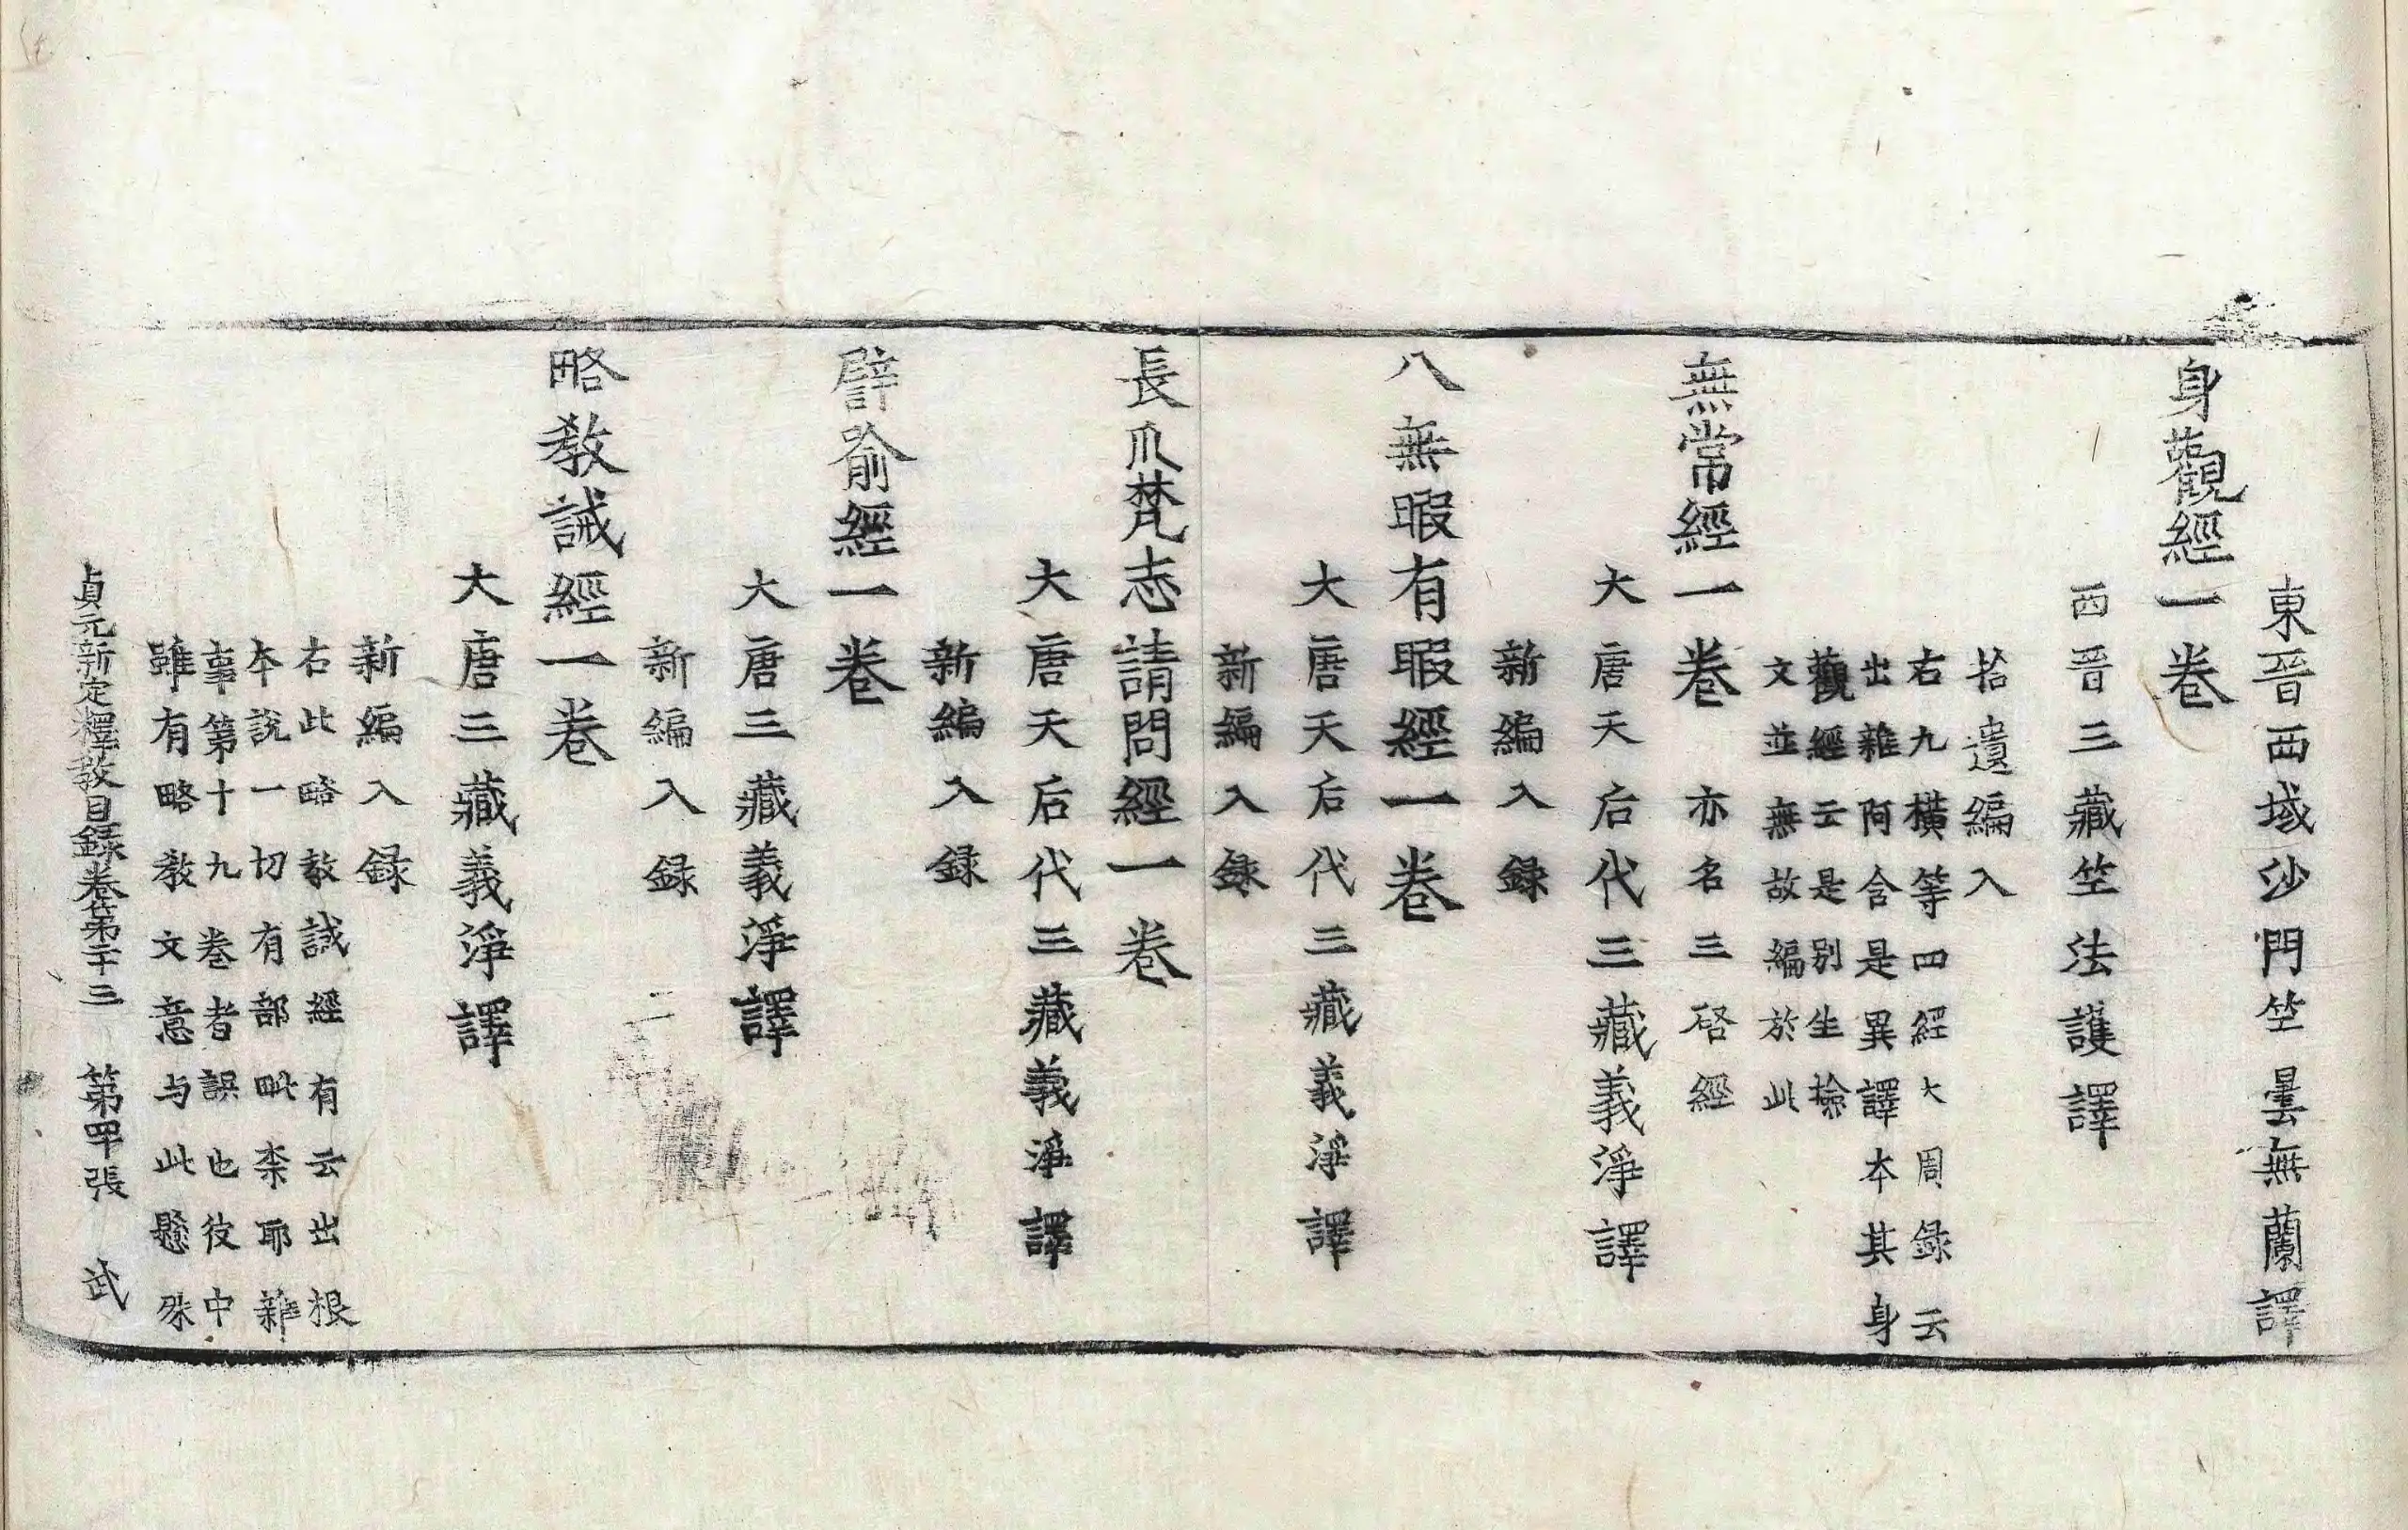 東晉西域沙門竺曇無蘭譯
身觀經一卷
西晉三藏竺法護譯
拾遺編入
右九橫等四經大周録云
出雜阿含是異譯本其身
觀經云是别生撿
文並無故編於此
無常經一卷亦名三啓經
大唐天后代三藏義淨譯
新編入録
八無暇有暇經一卷
大唐天后代三藏義淨譯
新編入録
長爪梵志請問經一卷
大唐天后代三藏義淨譯
新編入録
譬喻經一卷
大唐三藏義淨譯
新編入録
略教誡經一卷
大唐三藏義淨譯
新編入録
右此略教誡經有云出根
本說一切有部毗柰耶雜
事第十九卷者誤也彼中
雖有略教文意与此懸殊
貞元新定釋教目録卷第二十三 第四十張 武